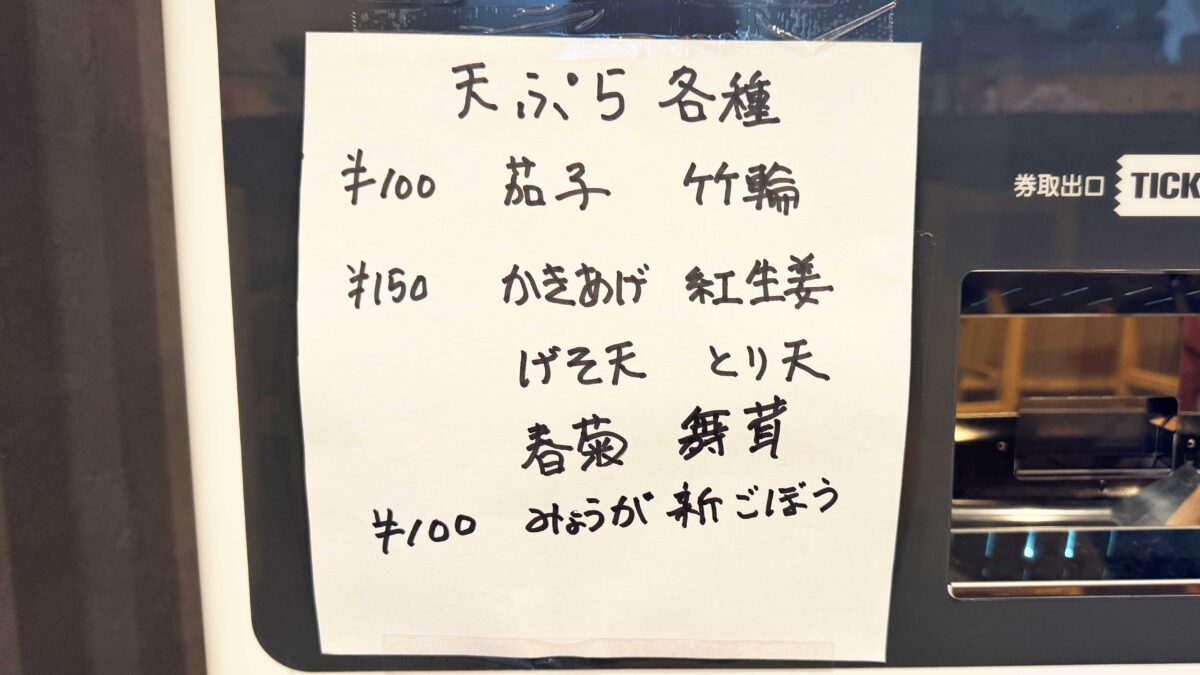 天ぷら 各種
¥100 茄子 竹輪
¥150 かきあげ 紅生姜
げそ天 とり天
春菊 舞茸
¥100 みょうが 新ごぼう
券取出口 TICK